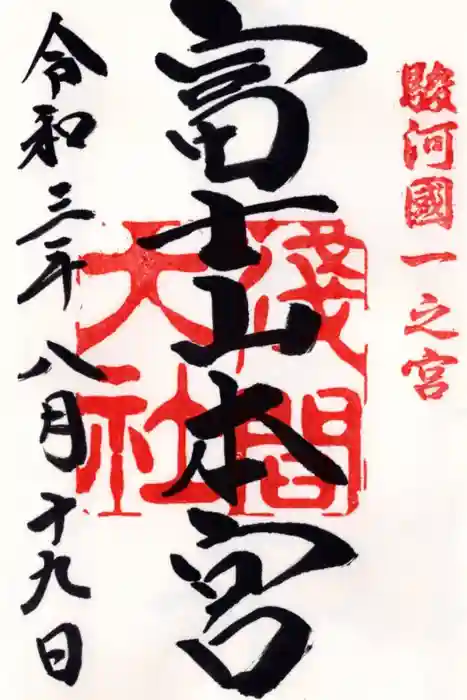 駿河國一之宮
富士山本宮
淺間大社
令和三年八月十九日